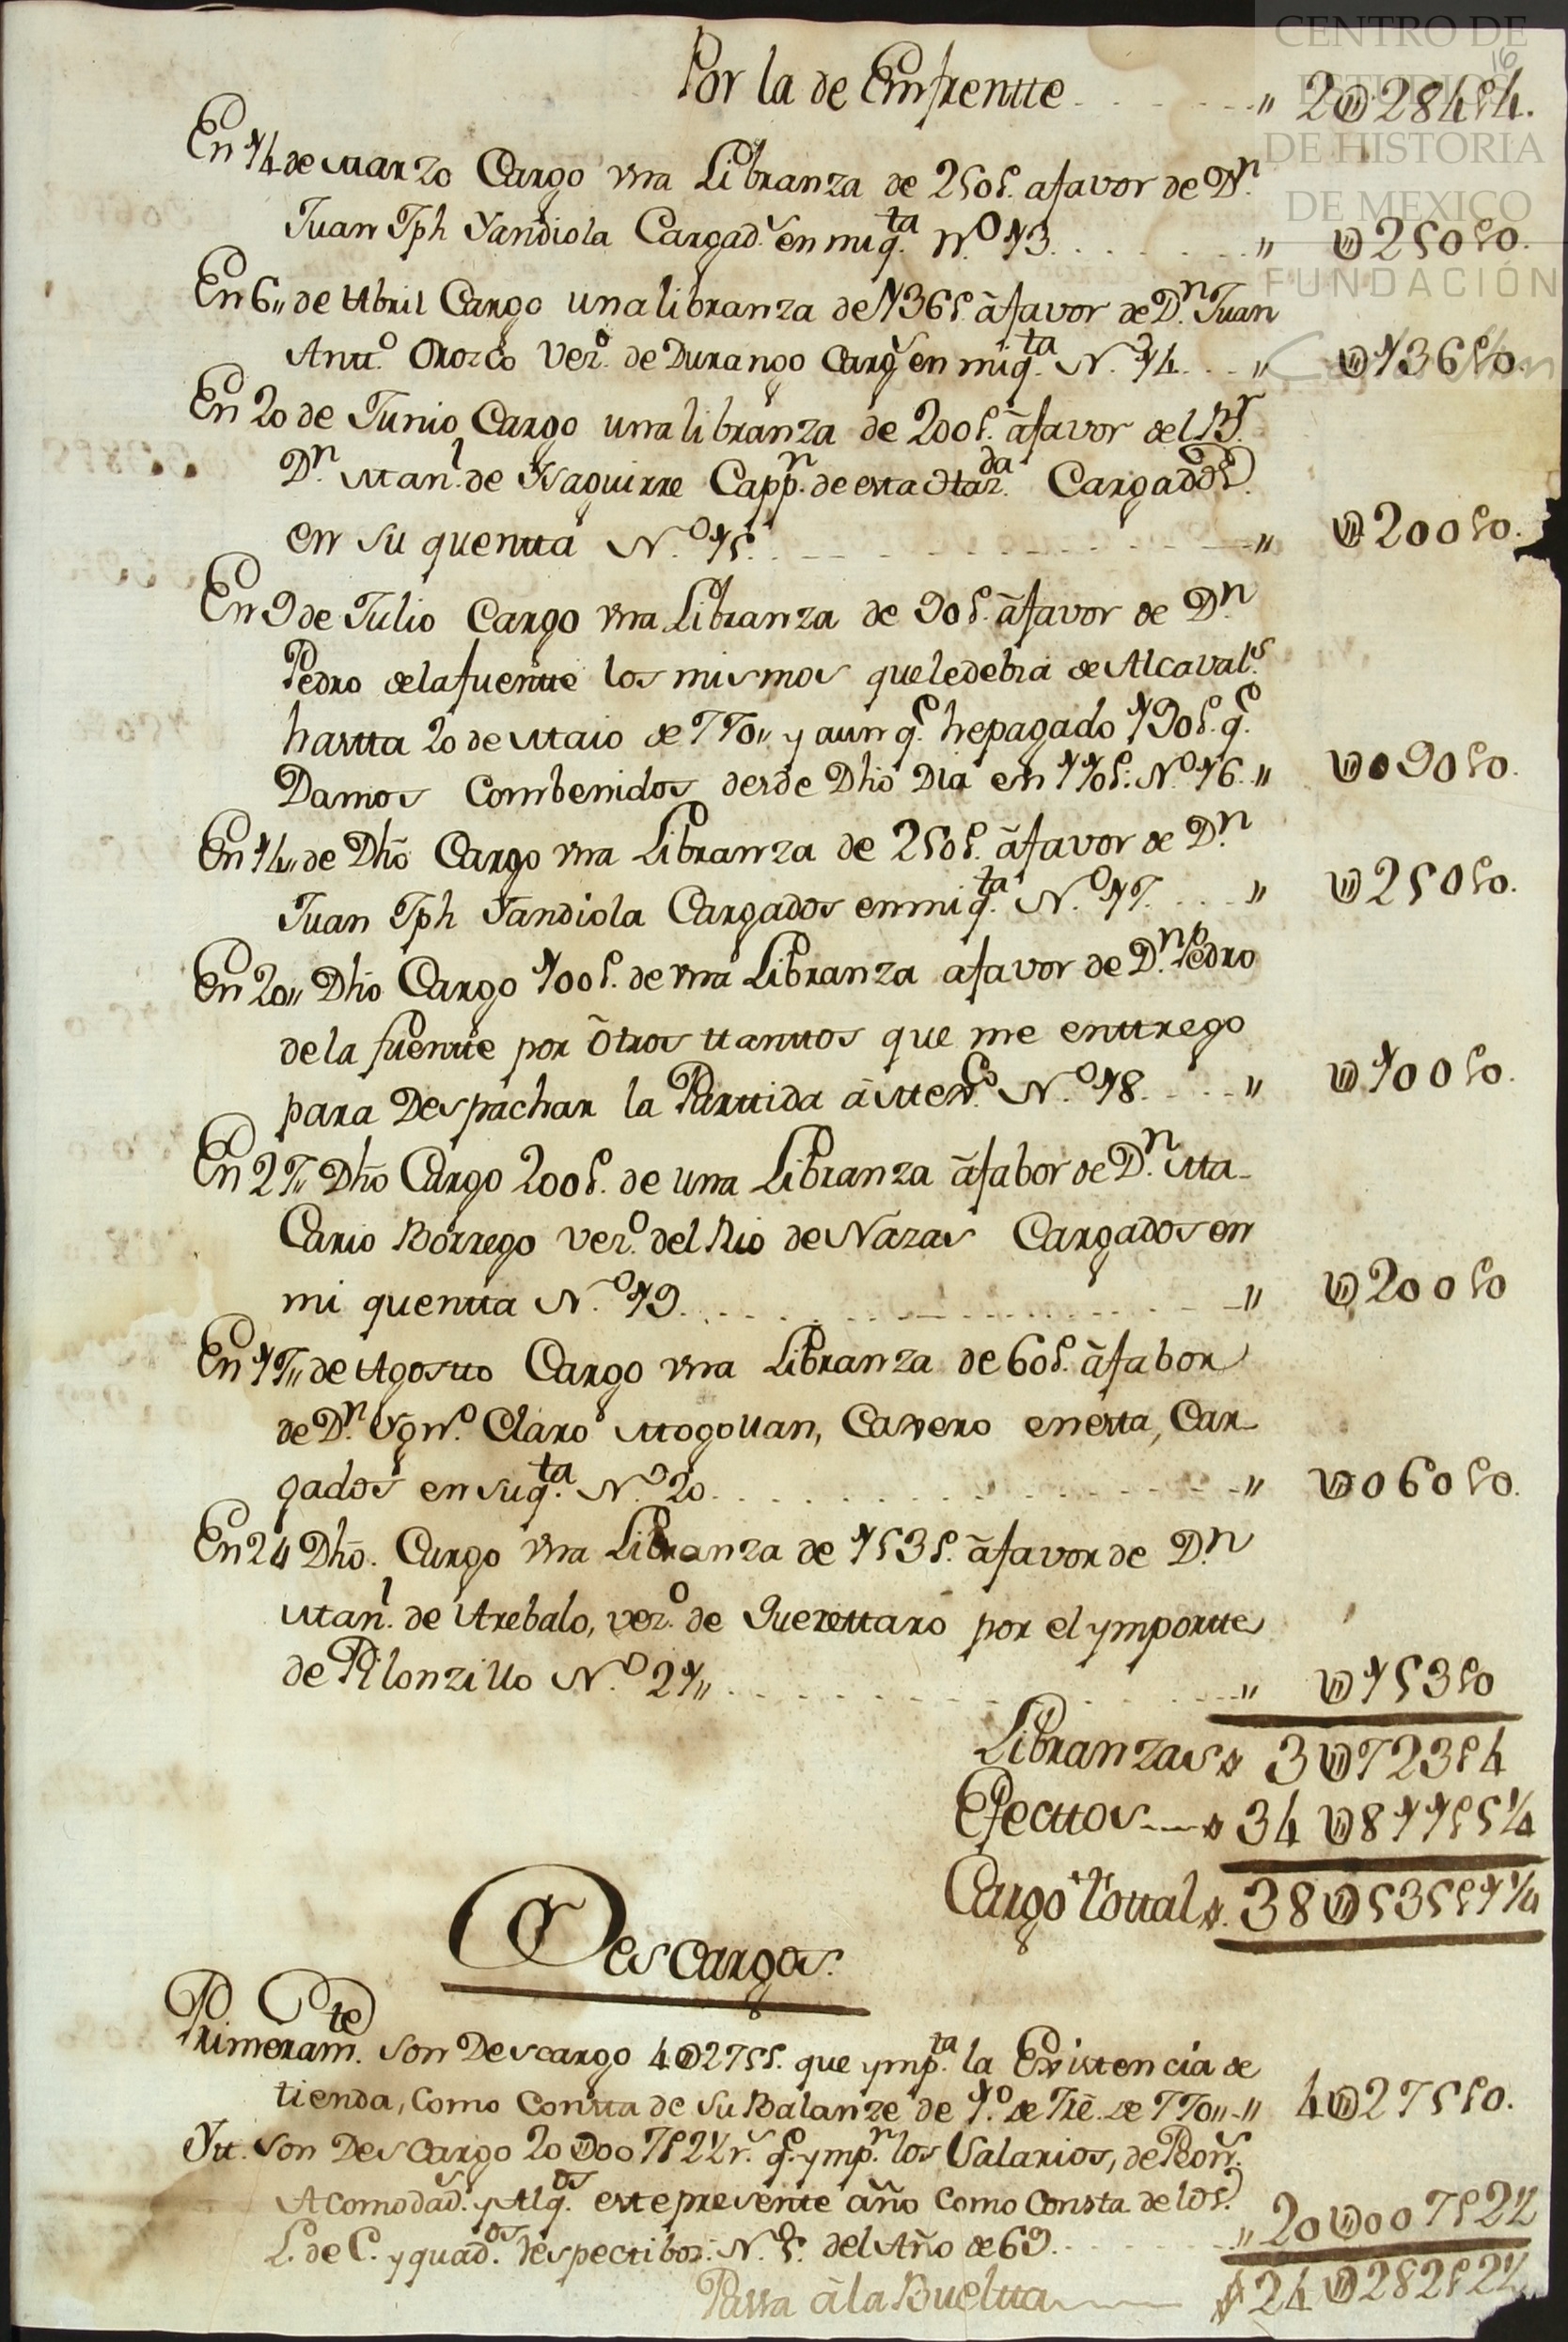 Por la de Enfrentte " 2U284p4.
En 14 de Marzo Cargo vna Libranza de 250p. afavor de Dn.
Juan Jph Yandiola Cargads. en mi qta. No. 13. " U250p0.
En 6,, de Abril Cargo una libranza de 136p. â favor de Dn. Juan
Antto. Orozco Vezo. de Durango Cargs. en mi qta. No. 14. " U136p0.
En 20 de Junio Cargo una libranza de 200p. â favor del Br.
Dn. Manl. de Yzaguirre Cappn. de esta Hazda. Cargados.
en su quenta No. 15. " U200p0.
En 9 de Julio Cargo vna Libranza de 90p. â favor de Dn.
Pedro dela fuentte los mismos que le debia de Alcavals.
hastta 20 de Maio de 770,, y aun qe. he pagado 190p. qe.
Damos Combenidos desde Dho Dia en 110p. No. 16. " U090p0.
En 14,, de Dho Cargo vna Libranza de 250p. â favor de Dn.
Juan Jph Yandiola Cargados en mi qta. No. 17. " U250p0.
En 20,, Dho Cargo 100p. de vna Libranza a favor de Dn. Pedro
de la fuentte por ôtros ttanttos que me enttrego
para Despachar la Parttida â Mexco. No. 18. " U100p0.
En 27,, Dho Cargo 200p. de una Libranza â fabor de Dn. Ma-
Cario Borrego vezo. del Rio de Nazas Cargados en
mi quentta No. 19. " U200p0
En 17,, de Agostto Cargo vna Libranza de 60p. â fabor
de Dn. Ygno. Claro Mogollan, Caxero en esta, Car
gados en su qta. No. 20. " U060p0.
En 24 Dho. Cargo vna Libranza de 153p. â favor de Dn.
Manl. de Arebalo, vezo. de Querettaro por el ymportte
de Pilonzillo No. 21,, " U153p0
Libranzas $ 3U723p4
Efecttos $ 34U811p5 1/4
Cargo Tottal $. 38U535p1 1/4
Descargos.
Primeramte. son Descargo 4U275p. que ympta. la Existencia de
tienda, Como Constta de su Balanze de 1o. de de 770,, " 4U275p0.
Ytt. son Descargo 20U007p2 1/2 rs. qe. ympn. los Salarios, de
Acomodads. y Alqos. este presente año como Consta de los
L. de C. y quados. Respectibos. N. 8. del Año de 69. " 20U007p2 1/2
Passa â la Bueltta $ 24U282p2 1/2
CENTRO DE
ESTUDIOS
DE HISTORIA
DE MEXICO
FUNDACIÓN